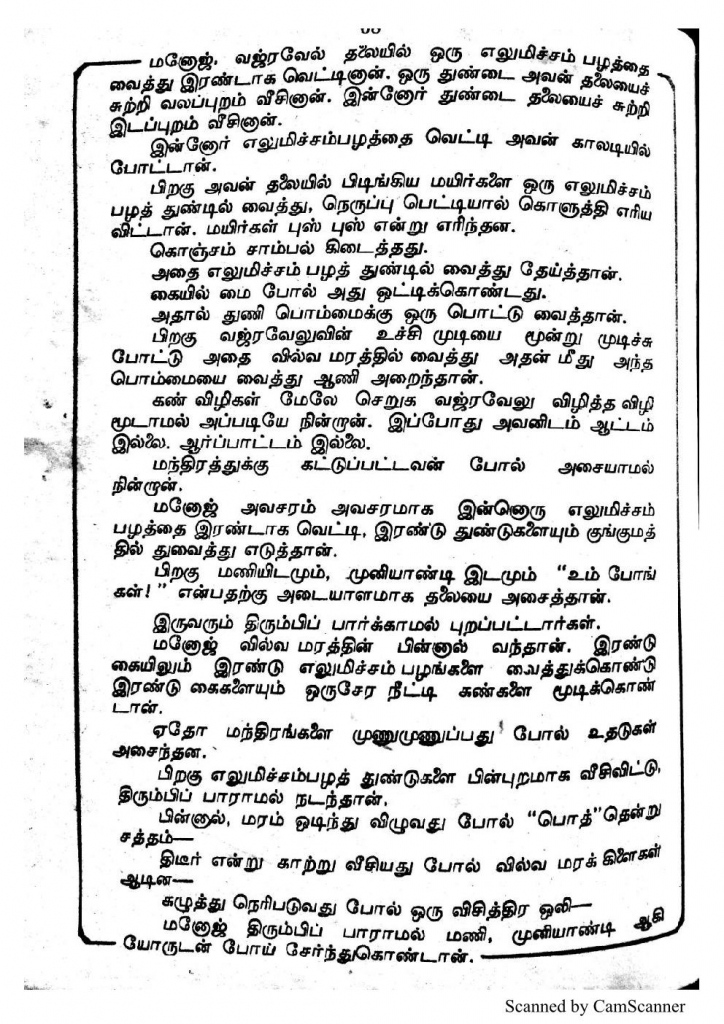 மனோஜ், வஜ்ரவேல் தலையில் ஒரு எலுமிச்சம் பழத்தை
வைத்து இரண்டாக வெட்டினான். ஒரு துண்டை அவன் தலையைச்
சுற்றி வலப்புறம் வீசினான். இன்னோர் துண்டை தலையைச் சுற்றி
இடப்புறம் வீசினான்.
இன்னோர் எலுமிச்சம்பழத்தை வெட்டி அவன் காலடியில்
போட்டான்.
பிறகு அவன் தலையில் பிடிங்கிய மயிர்களை ஒரு எலுமிச்சம்
பழத் துண்டில் வைத்து, நெருப்பு பெட்டியால் கொளுத்தி எரிய
விட்டான். மயிர்கள் புஸ் புஸ் என்று எரிந்தன.
கொஞ்சம் சாம்பல் கிடைத்தது.
அதை எலுமிச்சம் பழத் துண்டில் வைத்து தேய்த்தான்.
கையில் மை போல் அது ஒட்டிக்கொண்டது.
அதால் துணி பொம்மைக்கு ஒரு பொட்டு வைத்தான்.
பிறகு வஜ்ரவேலுவின் உச்சி முடியை மூன்று முடிச்சு
போட்டு அதை வில்வ மரத்தில் வைத்து அதன் மீது அந்த
பொம்மையை வைத்து ஆணி அறைந்தான்.
கண் விழிகள் மேலே செறுக வஜ்ரவேலு விழித்த விழி
மூடாமல் அப்படியே நின்றான். இப்போது அவனிடம் ஆட்டம்
இல்லை. ஆர்ப்பாட்டம் இல்லை.
மந்திரத்துக்கு கட்டுப்பட்டவன் போல் அசையாமல்
நின்றான்.
மனோஜ் அவசரம் அவசரமாக இன்னொரு எலுமிச்சம்
பழத்தை இரண்டாக வெட்டி, இரண்டு துண்டுகளையும் குங்குமத்
தில் துவைத்து எடுத்தான்.
பிறகு மணியிடமும், முனியாண்டி இடமும் "உம் போங்
கள்!" என்பதற்கு அடையாளமாக தலையை அசைத்தான்.
இருவரும் திரும்பிப் பார்க்காமல் புறப்பட்டார்கள்.
மனோஜ் வில்வ மரத்தின் பின்னால் வந்தான். இரண்டு
கையிலும் இரண்டு எலுமிச்சம் பழங்களை வைத்துக்கொண்டு
இரண்டு கைகளையும் ஒருசேர நீட்டி கண்களை மூடிக்கொண்
டான்.
ஏதோ மந்திரங்களை முணுமுணுப்பது போல் உதடுகள்
அசைந்தன.
பிறகு எலுமிச்சம்பழத் துண்டுகளை பின்புறமாக வீசிவிட்டு,
திரும்பிப் பாராமல் நடந்தான்.
பின்னால், மரம் ஒடிந்து விழுவது போல் "பொத்"தென்று
சத்தம்—
திடீர் என்று காற்று வீசியது போல் வில்வ மரக் கிளைகள்
ஆடின—
கழுத்து நெரிபடுவது போல் ஒரு விசித்திர ஒலி—
மனோஜ் திரும்பிப் பாராமல் மணி, முனியாண்டி ஆகி
யோருடன் போய் சேர்ந்துகொண்டான்.
Scanned by CamScanner